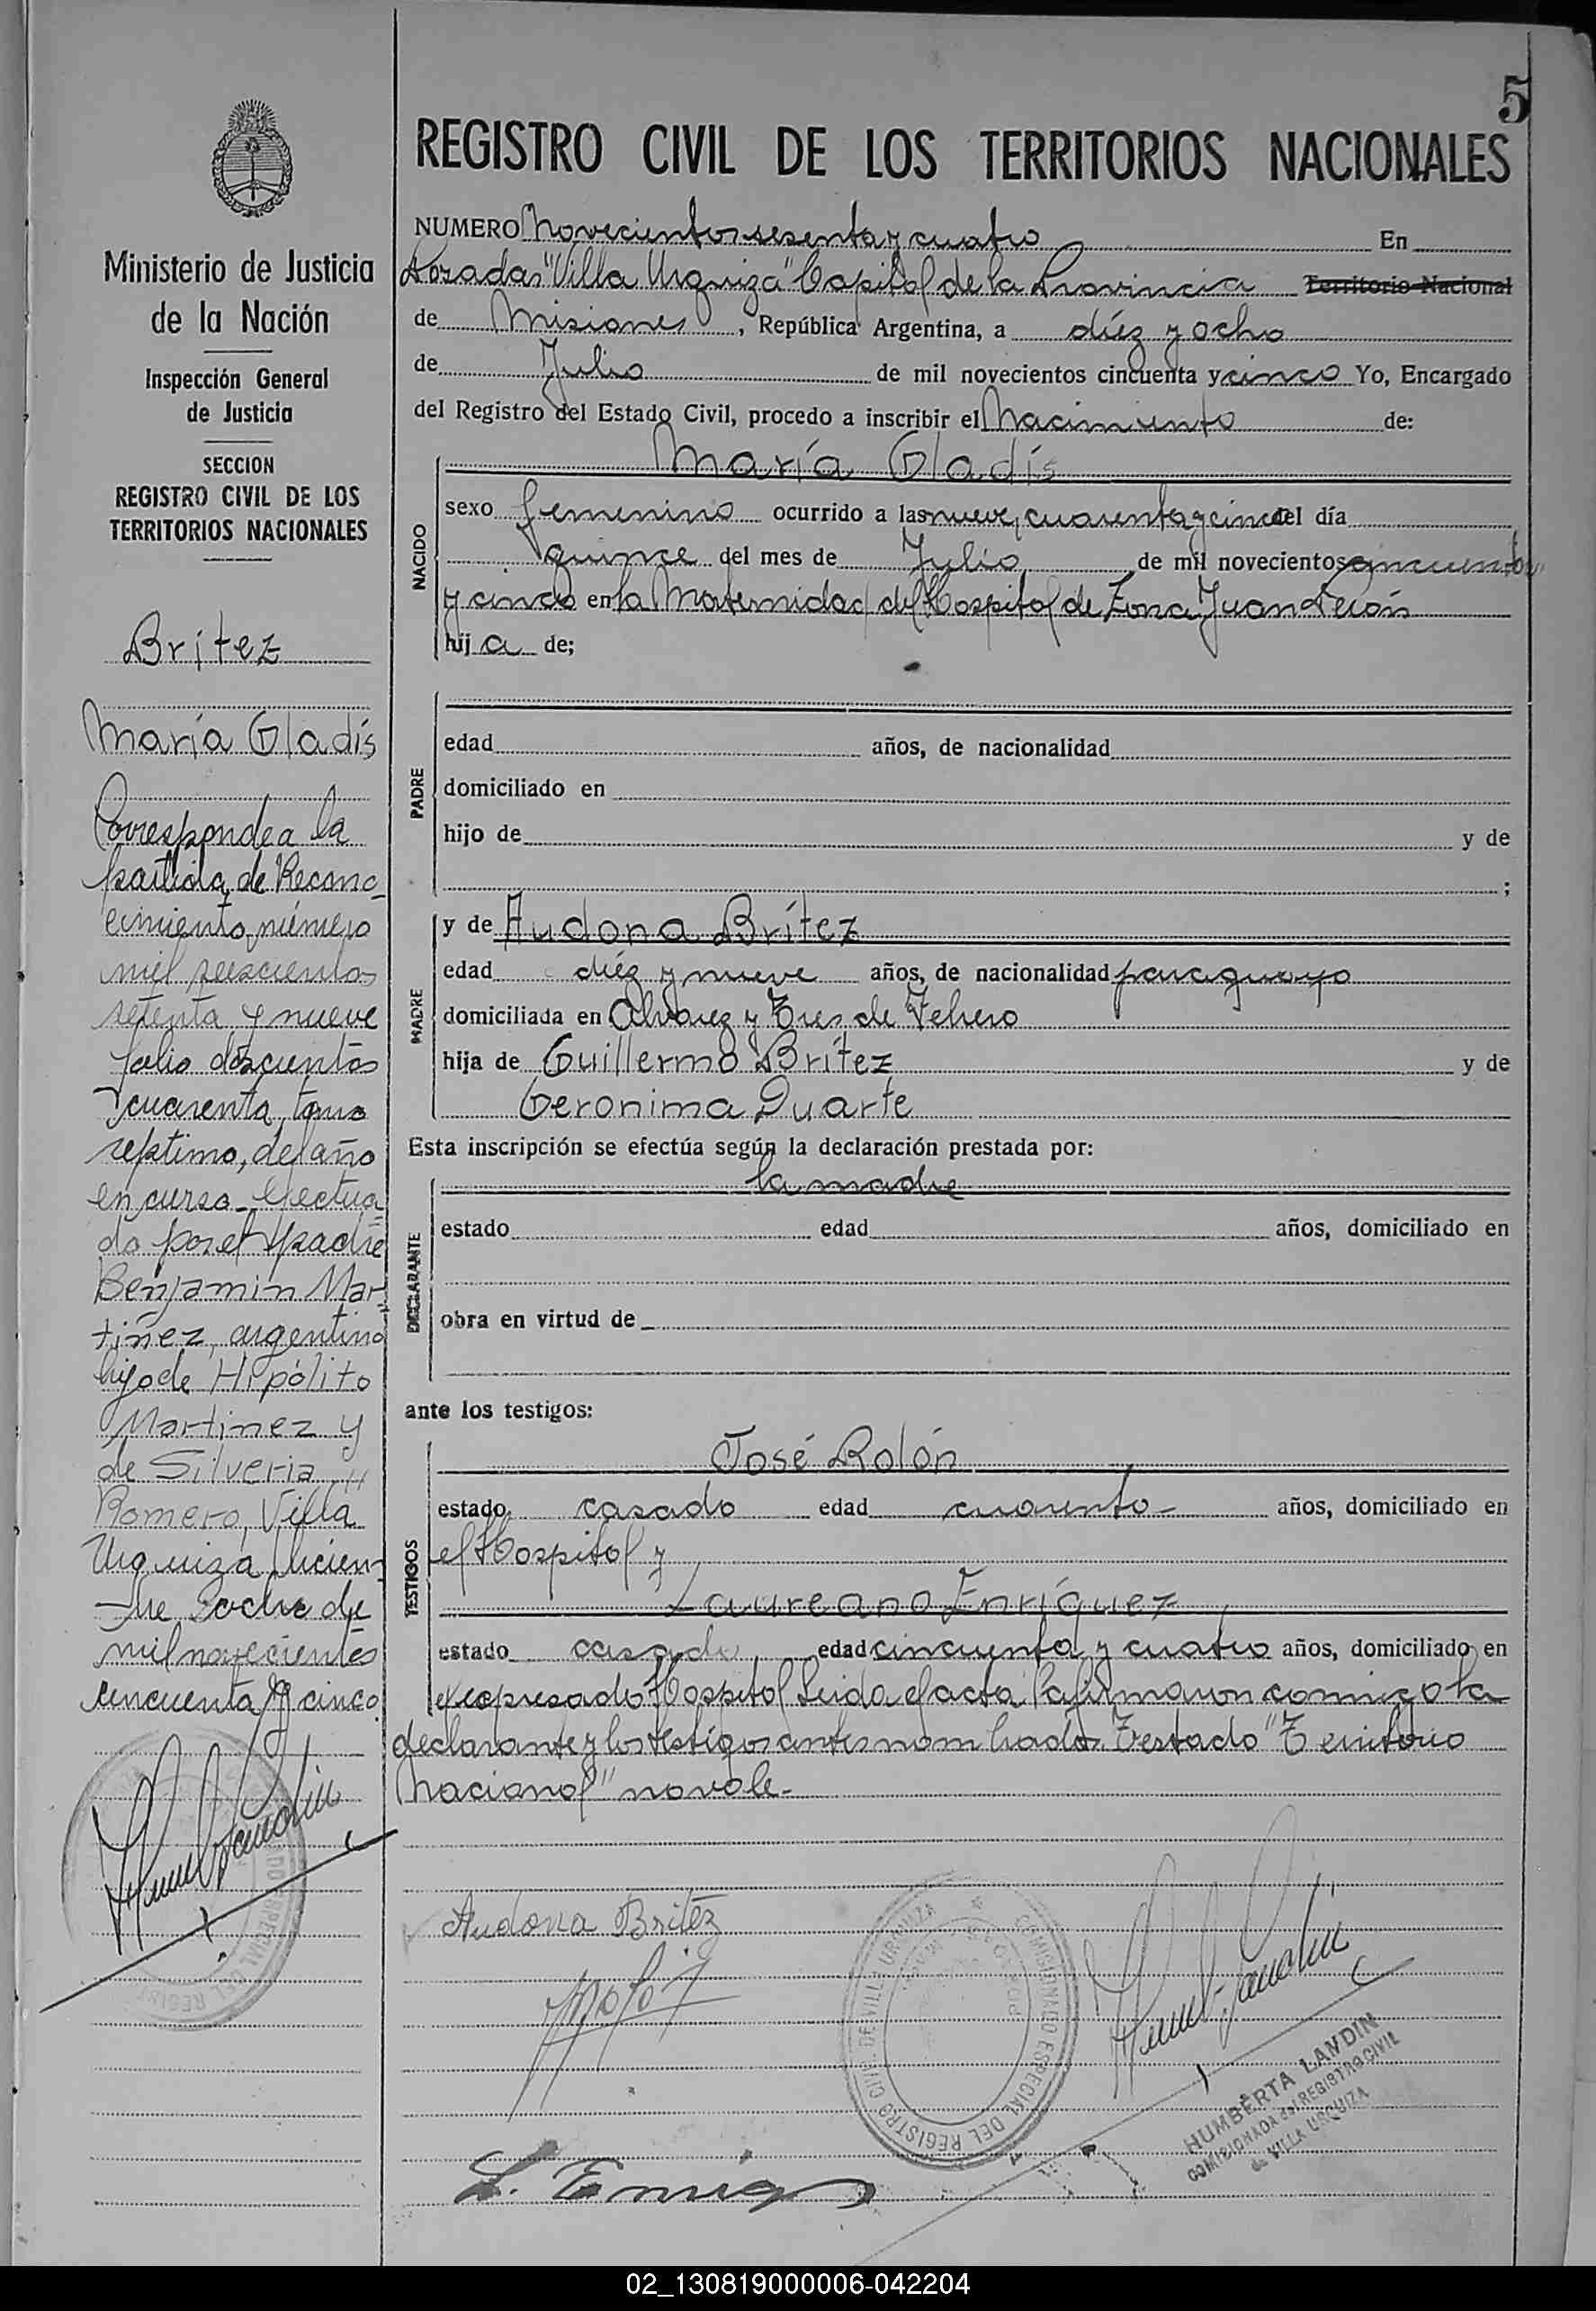 5
REGISTRO CIVIL DE LOS TERRITORIOS NACIONALES
Ministerio de Justicia
de la Nación
Inspección General
de Justicia
SECCION
REGISTRO CIVIL DE LOS
TERRITORIOS NACIONALES
Brítez
María Gladís
Corresponde a la
partida de Recono-
cimiento número
mil seiscientos
setenta y nueve
folio doscientos
cuarenta, tomo
séptimo, del año
en curso efectua-
do por el padre
Benjamín Mar-
tínez, argentino
hijo de Hipólito
Martinez y
de Silveria
Romero, Villa
Urquiza, diciem-
bre ocho de
mil novecientos
cincuenta y cinco
NUMERO Novecientos sesenta y cuatro En
Posadas "Villa Urquiza" Capital de la Provincia Territorio Nacional
de Misiones, República Argentina, a diéz y ocho
de Julio de mil novecientos cincuenta y cinco Yo, Encargado
del Registro del Estado Civil, procedo a inscribir el Nacimiento de:
María Gladís
NACIDO
sexo femenino ocurrido a las nueve, cuarenta y cinco del día
quince del mes de Julio de mil novecientos cincuenta
y cinco en la Maternidad del Hospital de Zona Juan Perón
hija de;
PADRE
edad años, de nacionalidad
domiciliado en
hijo de y de
;
MADRE
y de Audona Brítez
edad diéz y nueve años, de nacionalidad paraguaya
domiciliada en Alvarez y Tres de Febrero
hija de Guillermo Brítez y de
Geronima Duarte
Esta inscripción se efectúa según la declaración prestada por:
la madre
DECLARANTE
estado edad años, domiciliado en
obra en virtud de
ante los testigos:
José Rolón
TESTIGOS
estado casado edad cuarenta años, domiciliado en
el Hospital y
Laureano Enríquez
estado casado edad cincuenta y cuatro años, domiciliado en
expresado Hospital Leida el acta la firmaron conmigo la
declarante y los testigos antes nombrados. Testado "Territorio
Nacional" no vale.-
Audona Britéz
L. Enriq
COMISIONADO ESPECIAL DEL REGISTRO CIVIL DE VILLA URQUIZA
HUMBERTA LANDIN
COMISIONADA del REGISTRO CIVIL
de VILLA URQUIZA
02_130819000006-042204